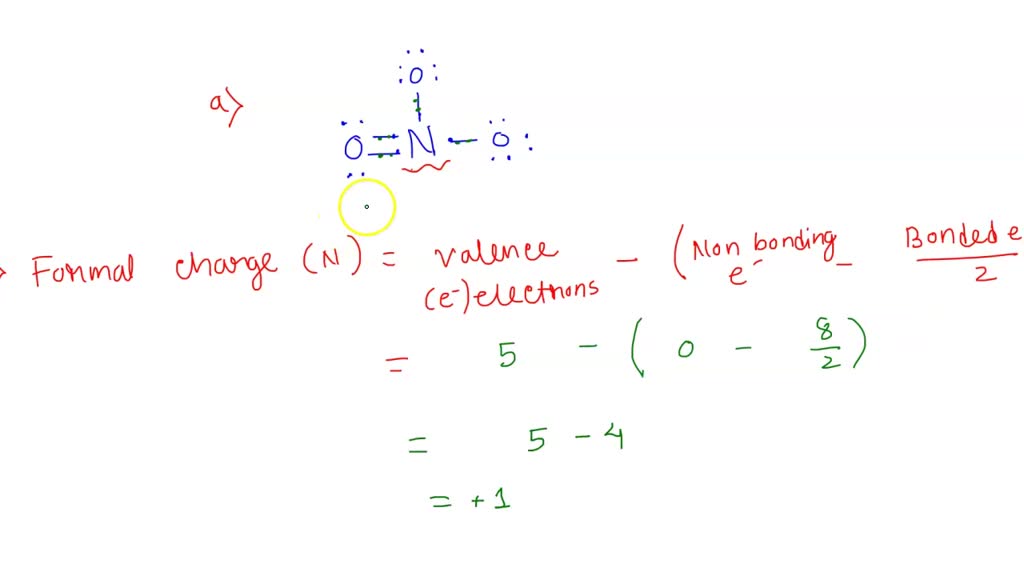 :O:
a)
O=N-O:
Formal charge (N) = valence (e-) electrons - (Non bonding e- - Bonded e
2
= 5 - ( 0 - 8/2 )
= 5 - 4
= +1